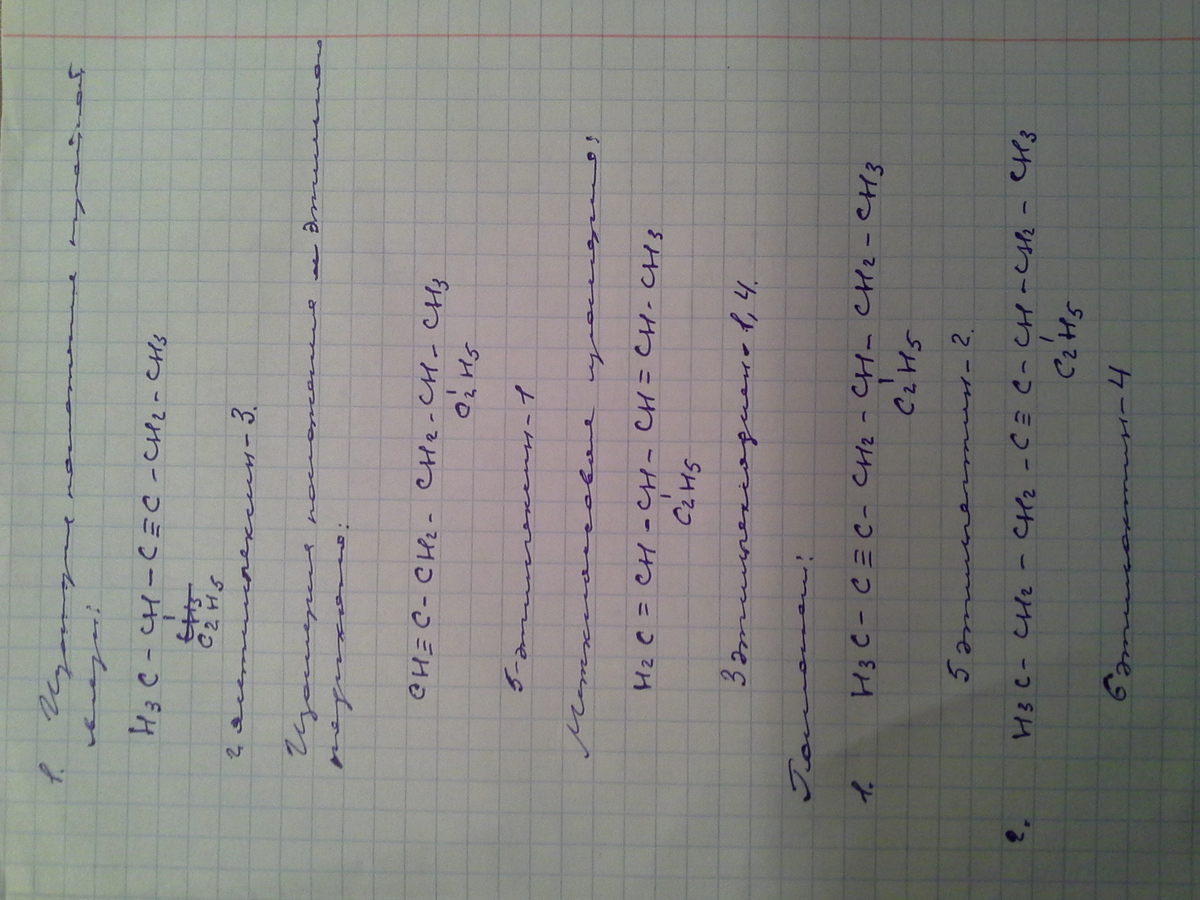 1. Изомерия положения тройной
связи:
H3C - CH - C ≡ C - CH2 - CH3
CH3
C2H5
2 этилгексин-3.
Изомерия положения этильного
радикала:
CH ≡ C - CH2 - CH2 - CH - CH3
C2H5
5-этилгексин-1
Межклассовая изомерия:
H2C = CH - CH - CH = CH - CH3
C2H5
3 этилгексадиен-1,4.
Гомологи:
1. H3C - C ≡ C - CH2 - CH - CH2 - CH3
C2H5
5 этилгептин-2.
2. H3C - CH2 - CH2 - C ≡ C - CH - CH2 - CH3
C2H5
6 этилоктин-4